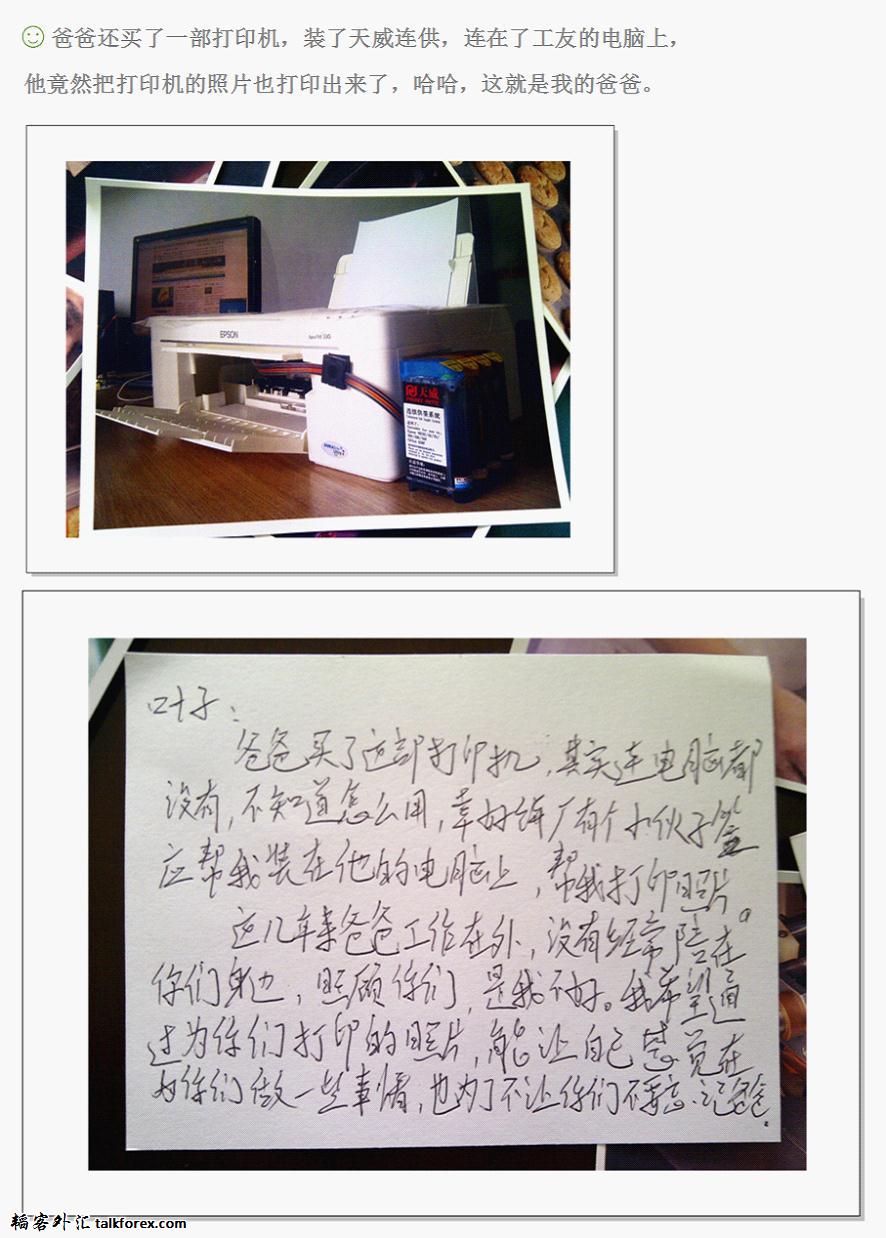 爸爸还买了一部打印机，装了天威连供，连在了工友的电脑上，
他竟然把打印机的照片也打印出来了，哈哈，这就是我的爸爸。
EPSON
天威
PRINT-RITE
连续供墨系统
叶子：
爸爸买了这部打印机，其实连电脑都
没有，不知道怎么用，幸好鞋厂有个小伙子答
应帮我装在他的电脑上，帮我打印照片。
这几年来爸爸工作在外，没有经常陪在
你们身边，照顾你们，是我不好。我希望通
过为你们打印的照片，能让自己感觉在
为你们做一些事情，也为了不让你们不要忘记爸爸。
韬客外汇 talkforex.com